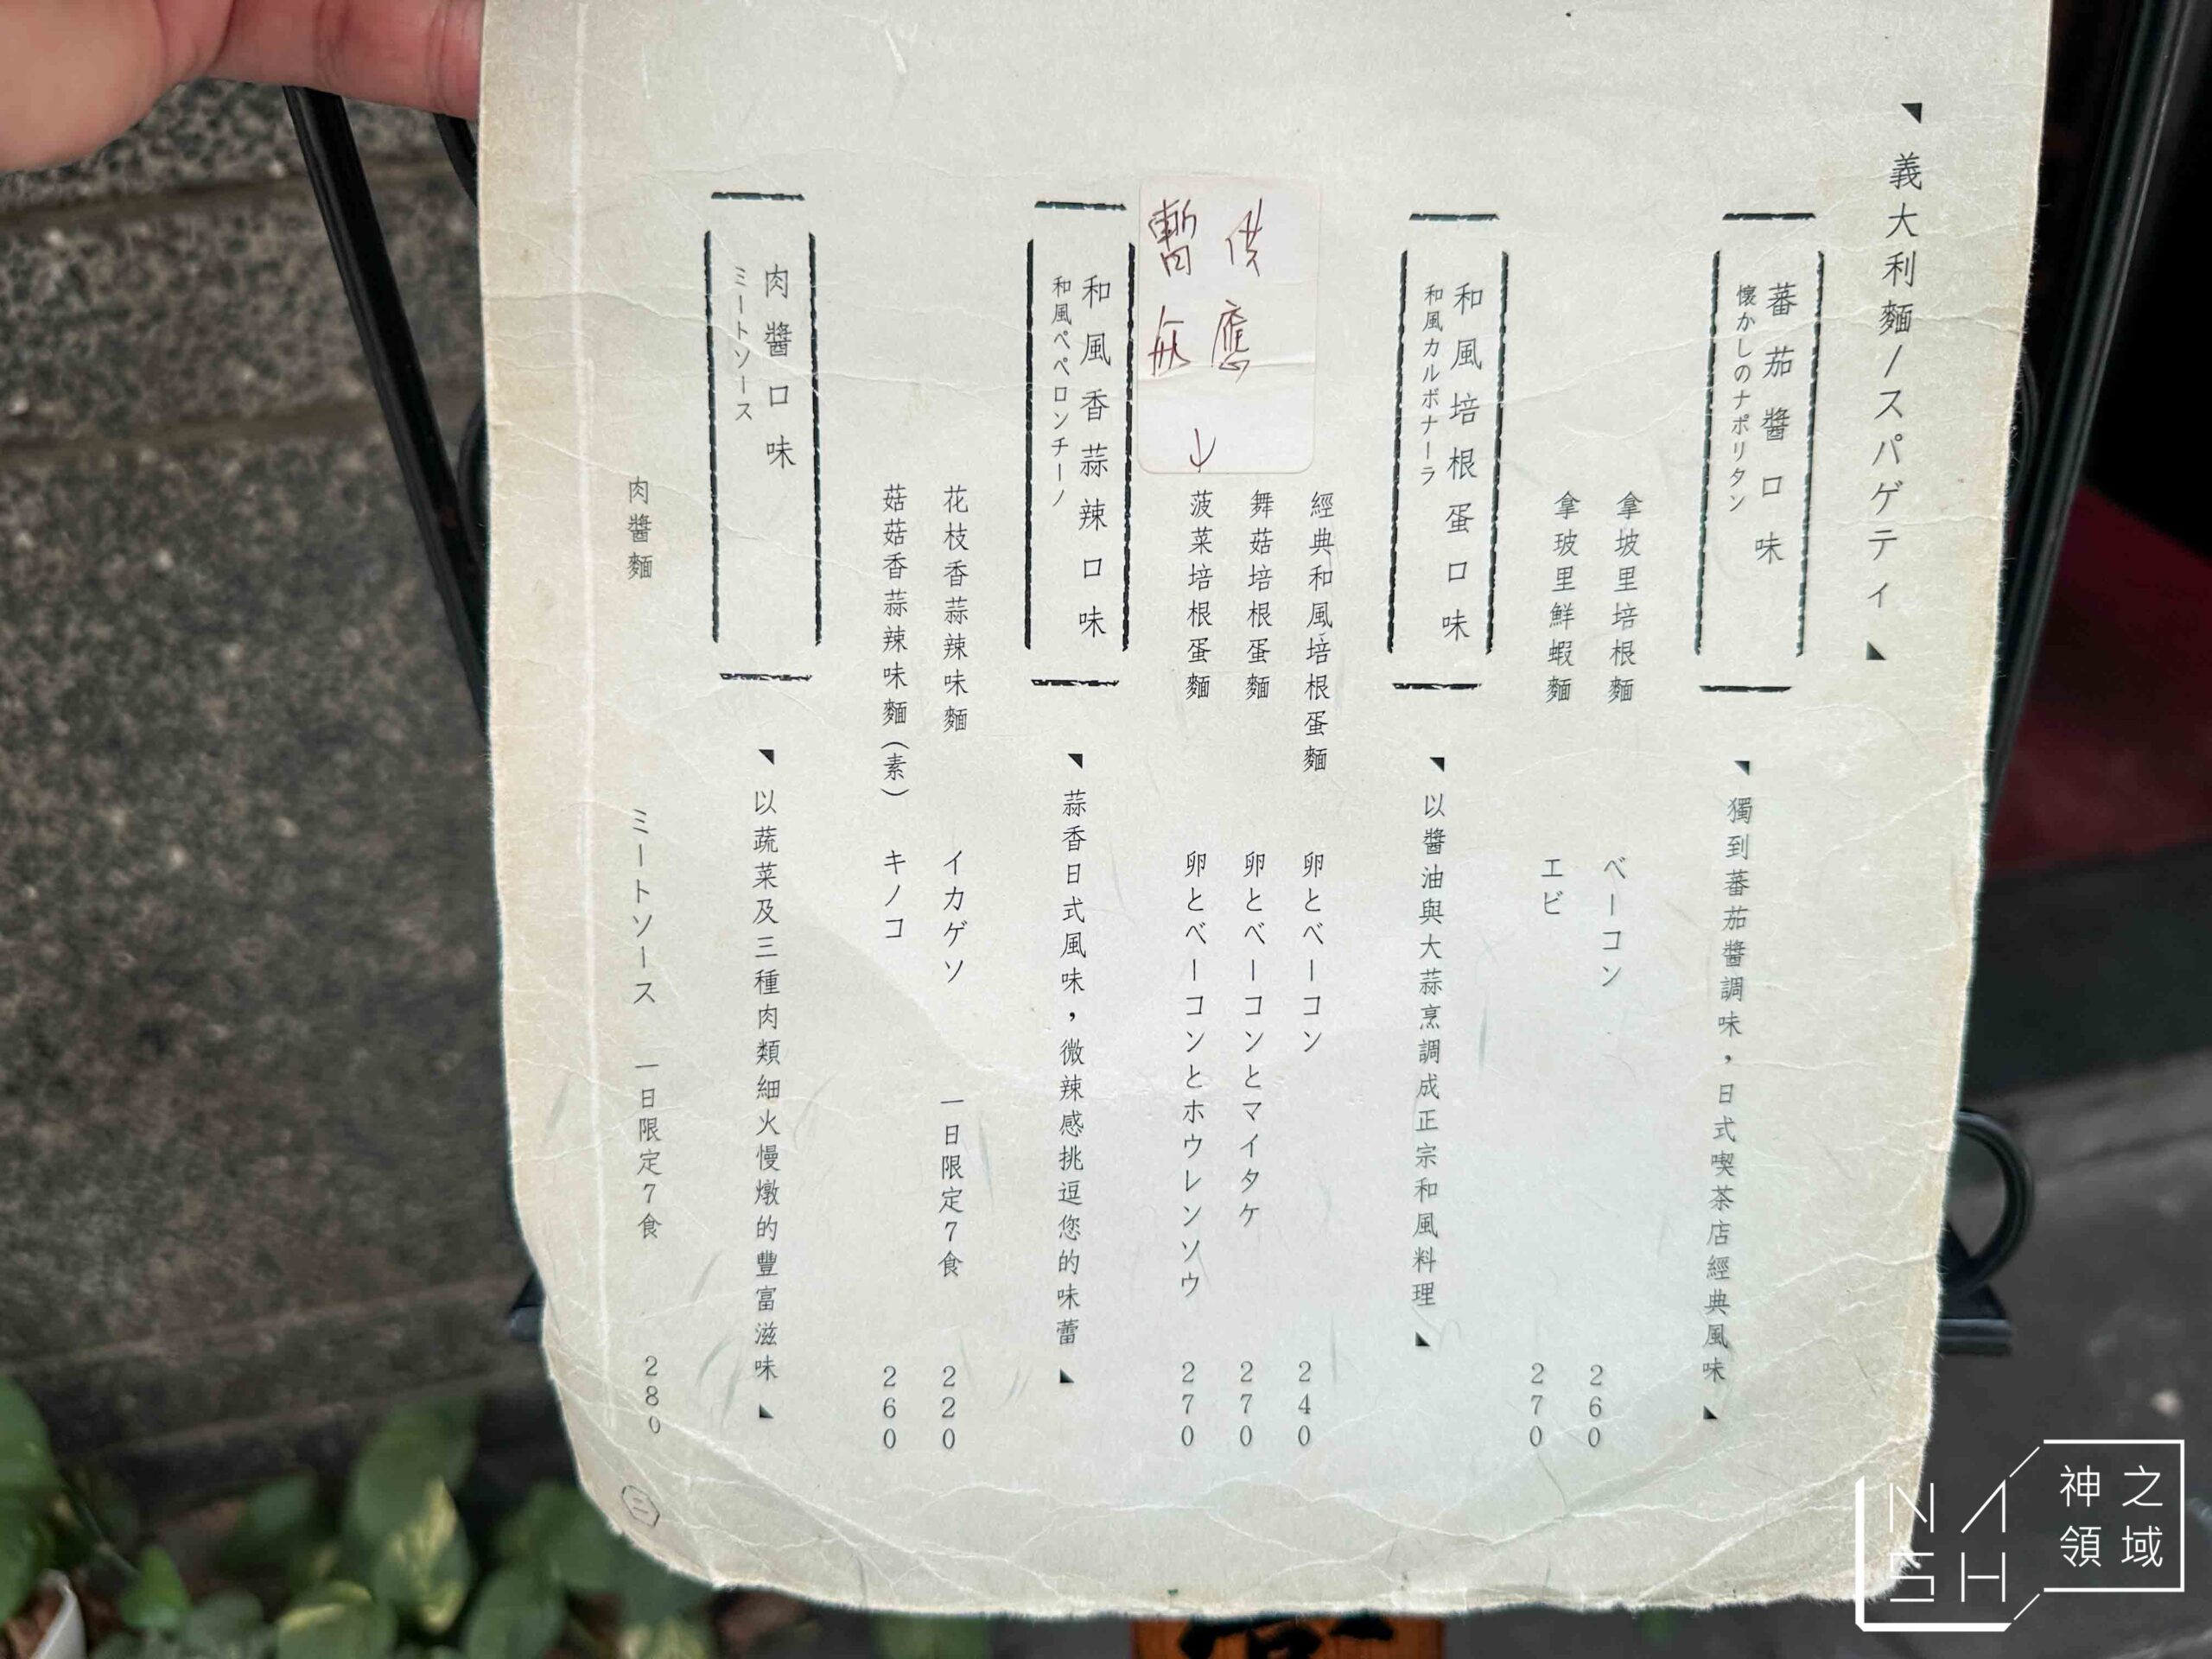 義大利麵/スパゲティ
蕃茄醬口味
懐かしのナポリタン
獨到蕃茄醬調味，日式喫茶店經典風味
拿坡里培根麵 ベーコン 260
拿玻里鮮蝦麵 エビ 270
和風培根蛋口味
和風カルボナーラ
以醬油與大蒜烹調成正宗和風料理
經典和風培根蛋麵 卵とベーコン 240
舞菇培根蛋麵 卵とベーコンとマイタケ 270
菠菜培根蛋麵 卵とベーコンとホウレンソウ 270
供應
暫無
↓
和風香蒜辣口味
和風ペペロンチーノ
蒜香日式風味，微辣感挑逗您的味蕾
花枝香蒜辣味麵 イカゲソ 一日限定7食 220
菇菇香蒜辣味麵(素) キノコ 260
肉醬口味
ミートソース
以蔬菜及三種肉類細火慢燉的豐富滋味
肉醬麵 ミートソース 一日限定7食 280
二
NASH
神之
領域